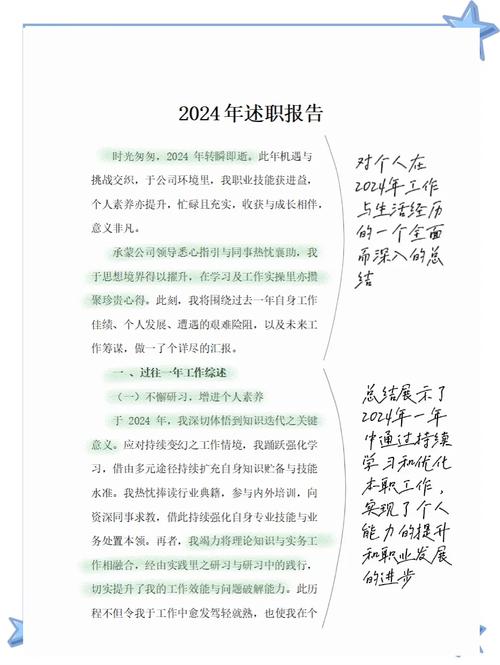 2024 年述职报告
时光匆匆，2024 年转瞬即逝。此年机遇与
挑战交织，于公司环境里，我职业技能获进益，
个人素养亦提升，忙碌且充实，收获与成长相伴，
意义非凡。
承蒙公司领导悉心指引与同事热忱襄助，我
于思想境界得以擢升，在学习及工作实操里亦攒
聚珍贵心得。此刻，我将围绕过去一年自身工作
佳绩、个人发展、遭遇的艰难险阻，以及未来工
作筹谋，做一个详尽的汇报。
一 、过往一年工作综述
（一）不懈研习，增进个人素养
于 2024 年，我深切体悟到知识迭代之关键
意义。应对持续变幻之工作情境，我踊跃强化学
习，借由多元途径持续扩充自身知识贮备与技能
水准。我热忱捧读行业典籍，参与内外培训，向
资深同事求教，借此持续强化自身专业技能与业
务处置本领。再者，我竭力将理论知识与实务工
作相融合，经由实践里之研习与研习中的践行，
切实提升了我的工作效能与问题破解能力。此历
程不但令我于工作中愈发驾轻就熟，也使我在个
对个人在
2024年工作
与生活经历
的一个全面
而深入的总
结
总结展示了
2024年一年
中通过持续
学习和优化
本职工作，
实现了个人
能力的提升
和职业发展
的进步